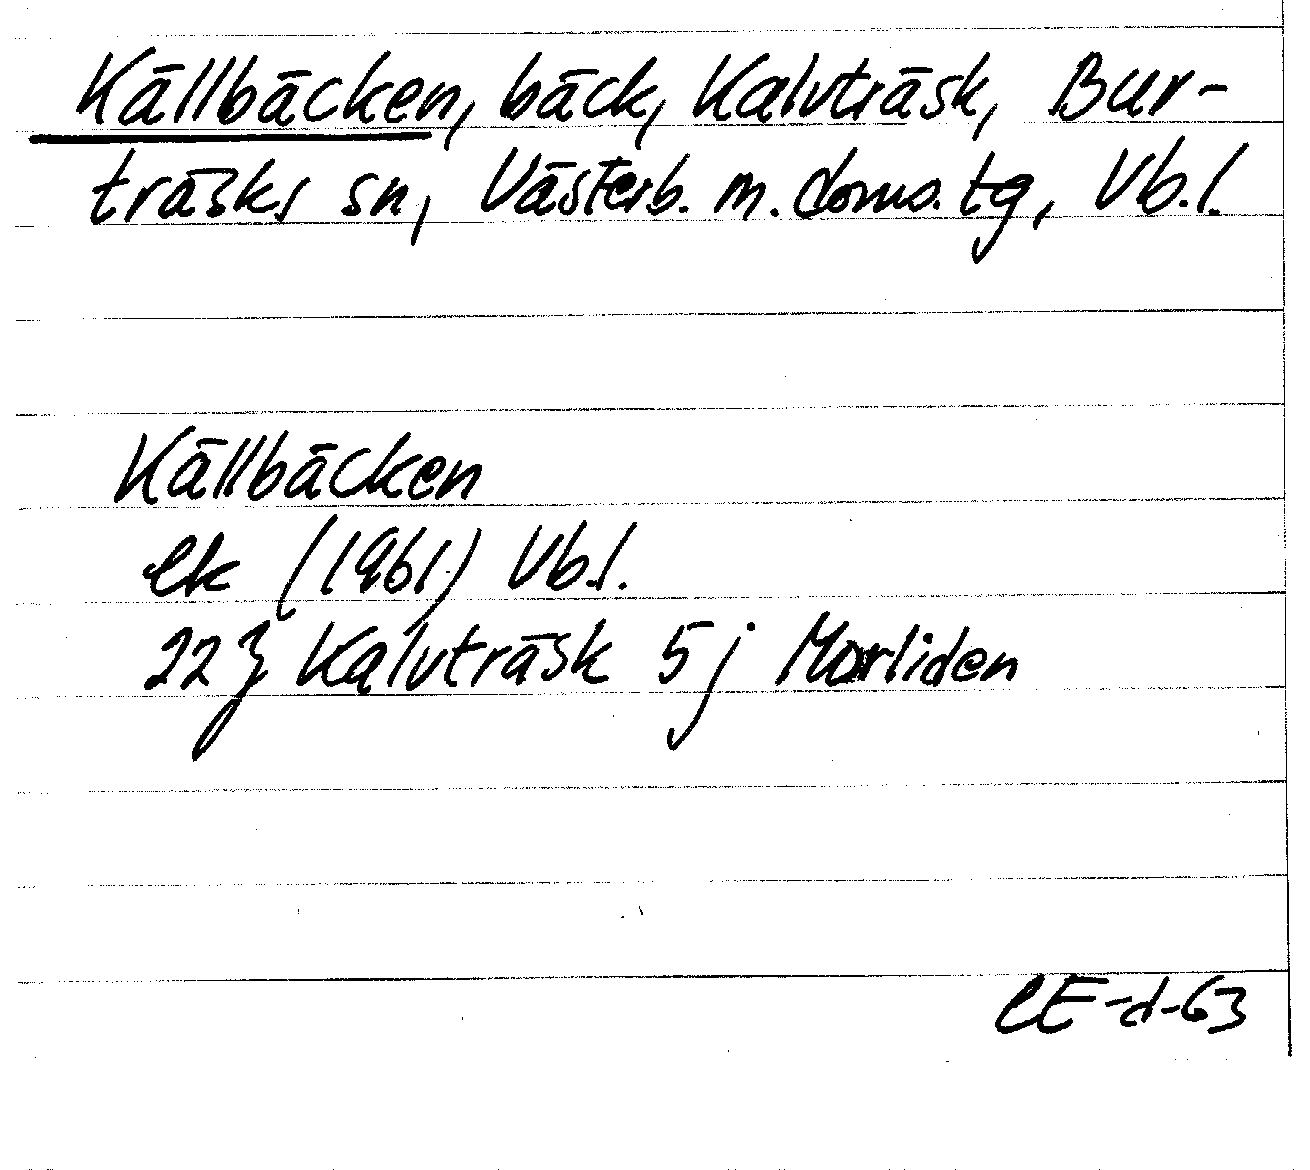 Källbäcken, bäck, Kalvträsk, Bur-
träsks sn, Västerb. m. doms. tg, Vb.l.
Källbäcken
ek (1961) Vb.l.
22 Kalvträsk 5 j Morliden
CE-d-63